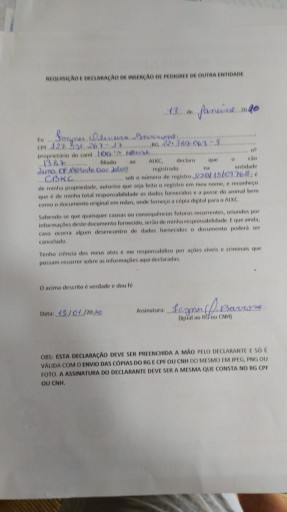 REQUISIÇÃO E DECLARAÇÃO DE INSERÇÃO DE PEDIGREE DE OUTRA ENTIDADE
13 de Janeiro
Eu
CPF RG
proprietário do canil nº
1367 filiado ao ALKC, declaro que o cão
registrado na entidade
CBKC sob o número de registro é
de minha propriedade, autorizo que seja feito o registro em meu nome, e reconheço
que é de minha total responsabilidade os dados fornecidos e a posse do animal bem
como o documento original em mãos, onde forneço a cópia digital para o ALKC.
Sabendo-se que quaisquer causas ou consequências futuras recorrentes, oriundas por
informações deste documento fornecido, serão de minha responsabilidade. E que ainda,
caso ocorra algum desencontro de dados fornecidos o documento poderá ser
cancelado.
Tenho ciência dos meus atos e me responsabilizo por ações cíveis e criminais que
possam recorrer sobre as informações aqui declaradas.
O acima descrito é verdade e dou fé
Data: 13/01/2020 Assinatura:
(Igual ao RG ou CNH)
OBS: ESTA DECLARAÇÃO DEVE SER PREENCHIDA A MÃO PELO DECLARANTE E SÓ É
VÁLIDA COM O ENVIO DAS CÓPIAS DO RG E CPF OU CNH DO MESMO EM JPEG, PNG OU
FOTO. A ASSINATURA DO DECLARANTE DEVE SER A MESMA QUE CONSTA NO RG CPF
OU CNH.